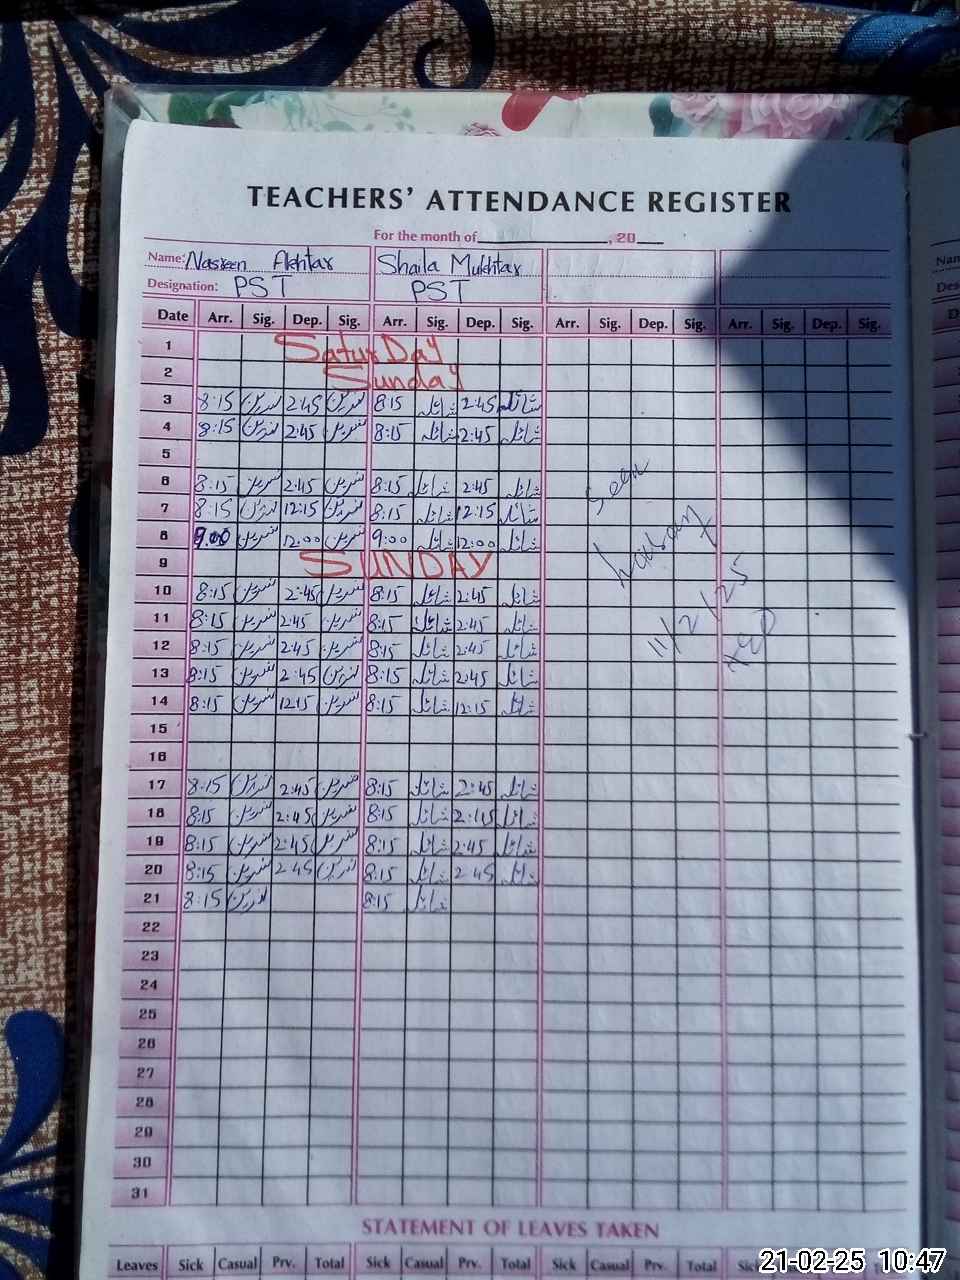 TEACHERS' ATTENDANCE REGISTER
For the month of ________, 20__
Name: Nasreen Akhtar Shaila Mukhtar
Designation: PST PST
Date Arr. Sig. Dep. Sig. Arr. Sig. Dep. Sig. Arr. Sig. Dep. Sig. Arr. Sig. Dep. Sig.
1 SaturDay
2 Sunday
3 8:15 نسرین 2:45 نسرین 8:15 شائلہ 2:45 شائلہ
4 8:15 نسرین 2:45 نسرین 8:15 شائلہ 2:45 شائلہ
5
6 8:15 نسرین 2:45 نسرین 8:15 شائلہ 2:45 شائلہ
7 8:15 نسرین 12:15 نسرین 8:15 شائلہ 12:15 شائلہ
8 9:00 نسرین 12:00 نسرین 9:00 شائلہ 12:00 شائلہ
9 SUNDAY
10 8:15 نسرین 2:45 نسرین 8:15 شائلہ 2:45 شائلہ
11 8:15 نسرین 2:45 نسرین 8:15 شائلہ 2:45 شائلہ
12 8:15 نسرین 2:45 نسرین 8:15 شائلہ 2:45 شائلہ
13 8:15 نسرین 2:45 نسرین 8:15 شائلہ 2:45 شائلہ
14 8:15 نسرین 12:15 نسرین 8:15 شائلہ 12:15 شائلہ
15
16
17 8:15 نسرین 2:45 نسرین 8:15 شائلہ 2:45 شائلہ
18 8:15 نسرین 2:45 نسرین 8:15 شائلہ 2:45 شائلہ
19 8:15 نسرین 2:45 نسرین 8:15 شائلہ 2:45 شائلہ
20 8:15 نسرین 2:45 نسرین 8:15 شائلہ 2:45 شائلہ
21 8:15 نسرین 8:15 شائلہ
22
23
24
25
26
27
28
29
30
31
Seen
11/2/25
STATEMENT OF LEAVES TAKEN
Leaves Sick Casual Prv. Total Sick Casual Prv. Total Sick Casual Prv. Total Sick
21-02-25 10:47